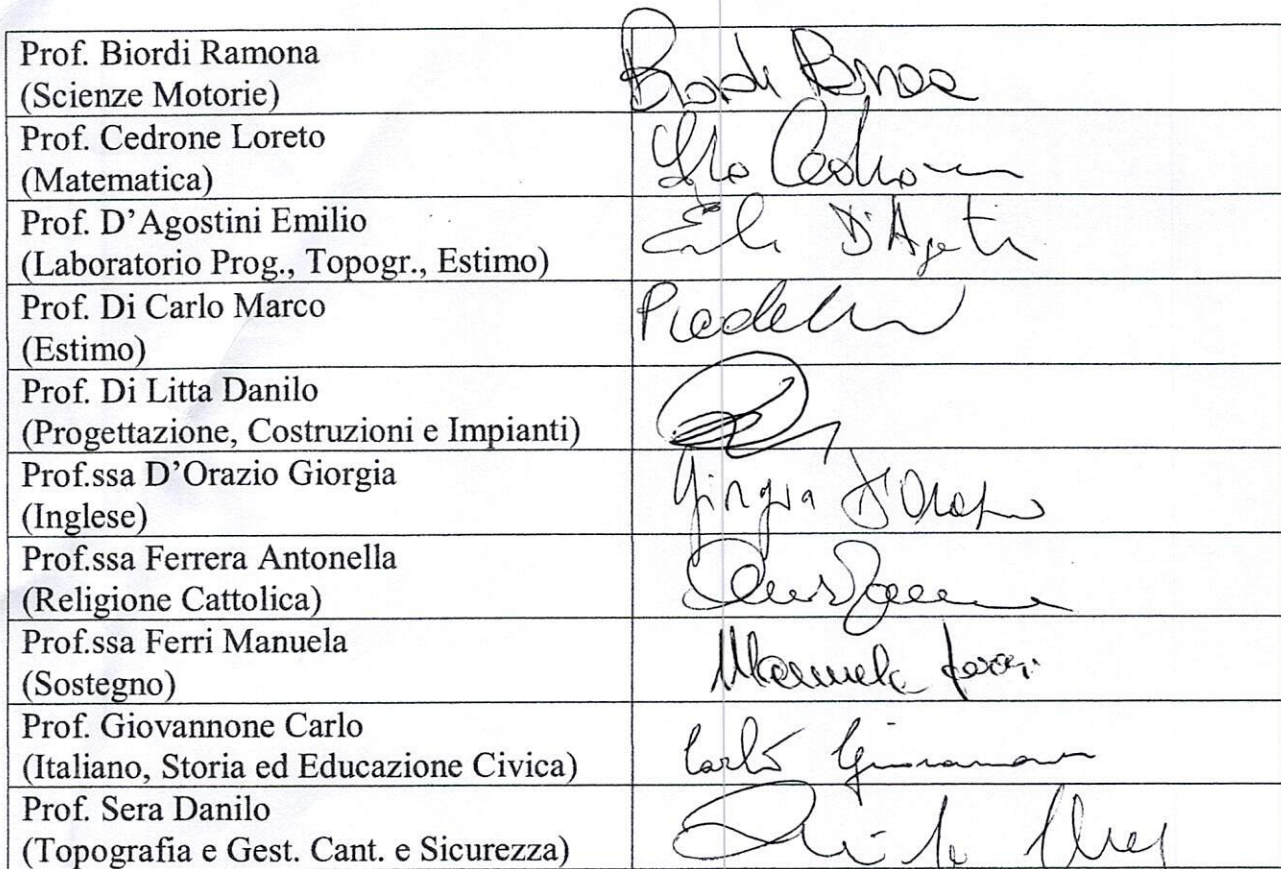 Prof. Biordi Ramona
(Scienze Motorie)
Prof. Cedrone Loreto
(Matematica)
Prof. D'Agostini Emilio
(Laboratorio Prog., Topogr., Estimo)
Prof. Di Carlo Marco
(Estimo)
Prof. Di Litta Danilo
(Progettazione, Costruzioni e Impianti)
Prof.ssa D'Orazio Giorgia
(Inglese)
Giorgia D'Orazio
Prof.ssa Ferrera Antonella
(Religione Cattolica)
Prof.ssa Ferri Manuela
(Sostegno)
Manuela Ferri
Prof. Giovannone Carlo
(Italiano, Storia ed Educazione Civica)
Carlo Giovannone
Prof. Sera Danilo
(Topografia e Gest. Cant. e Sicurezza)